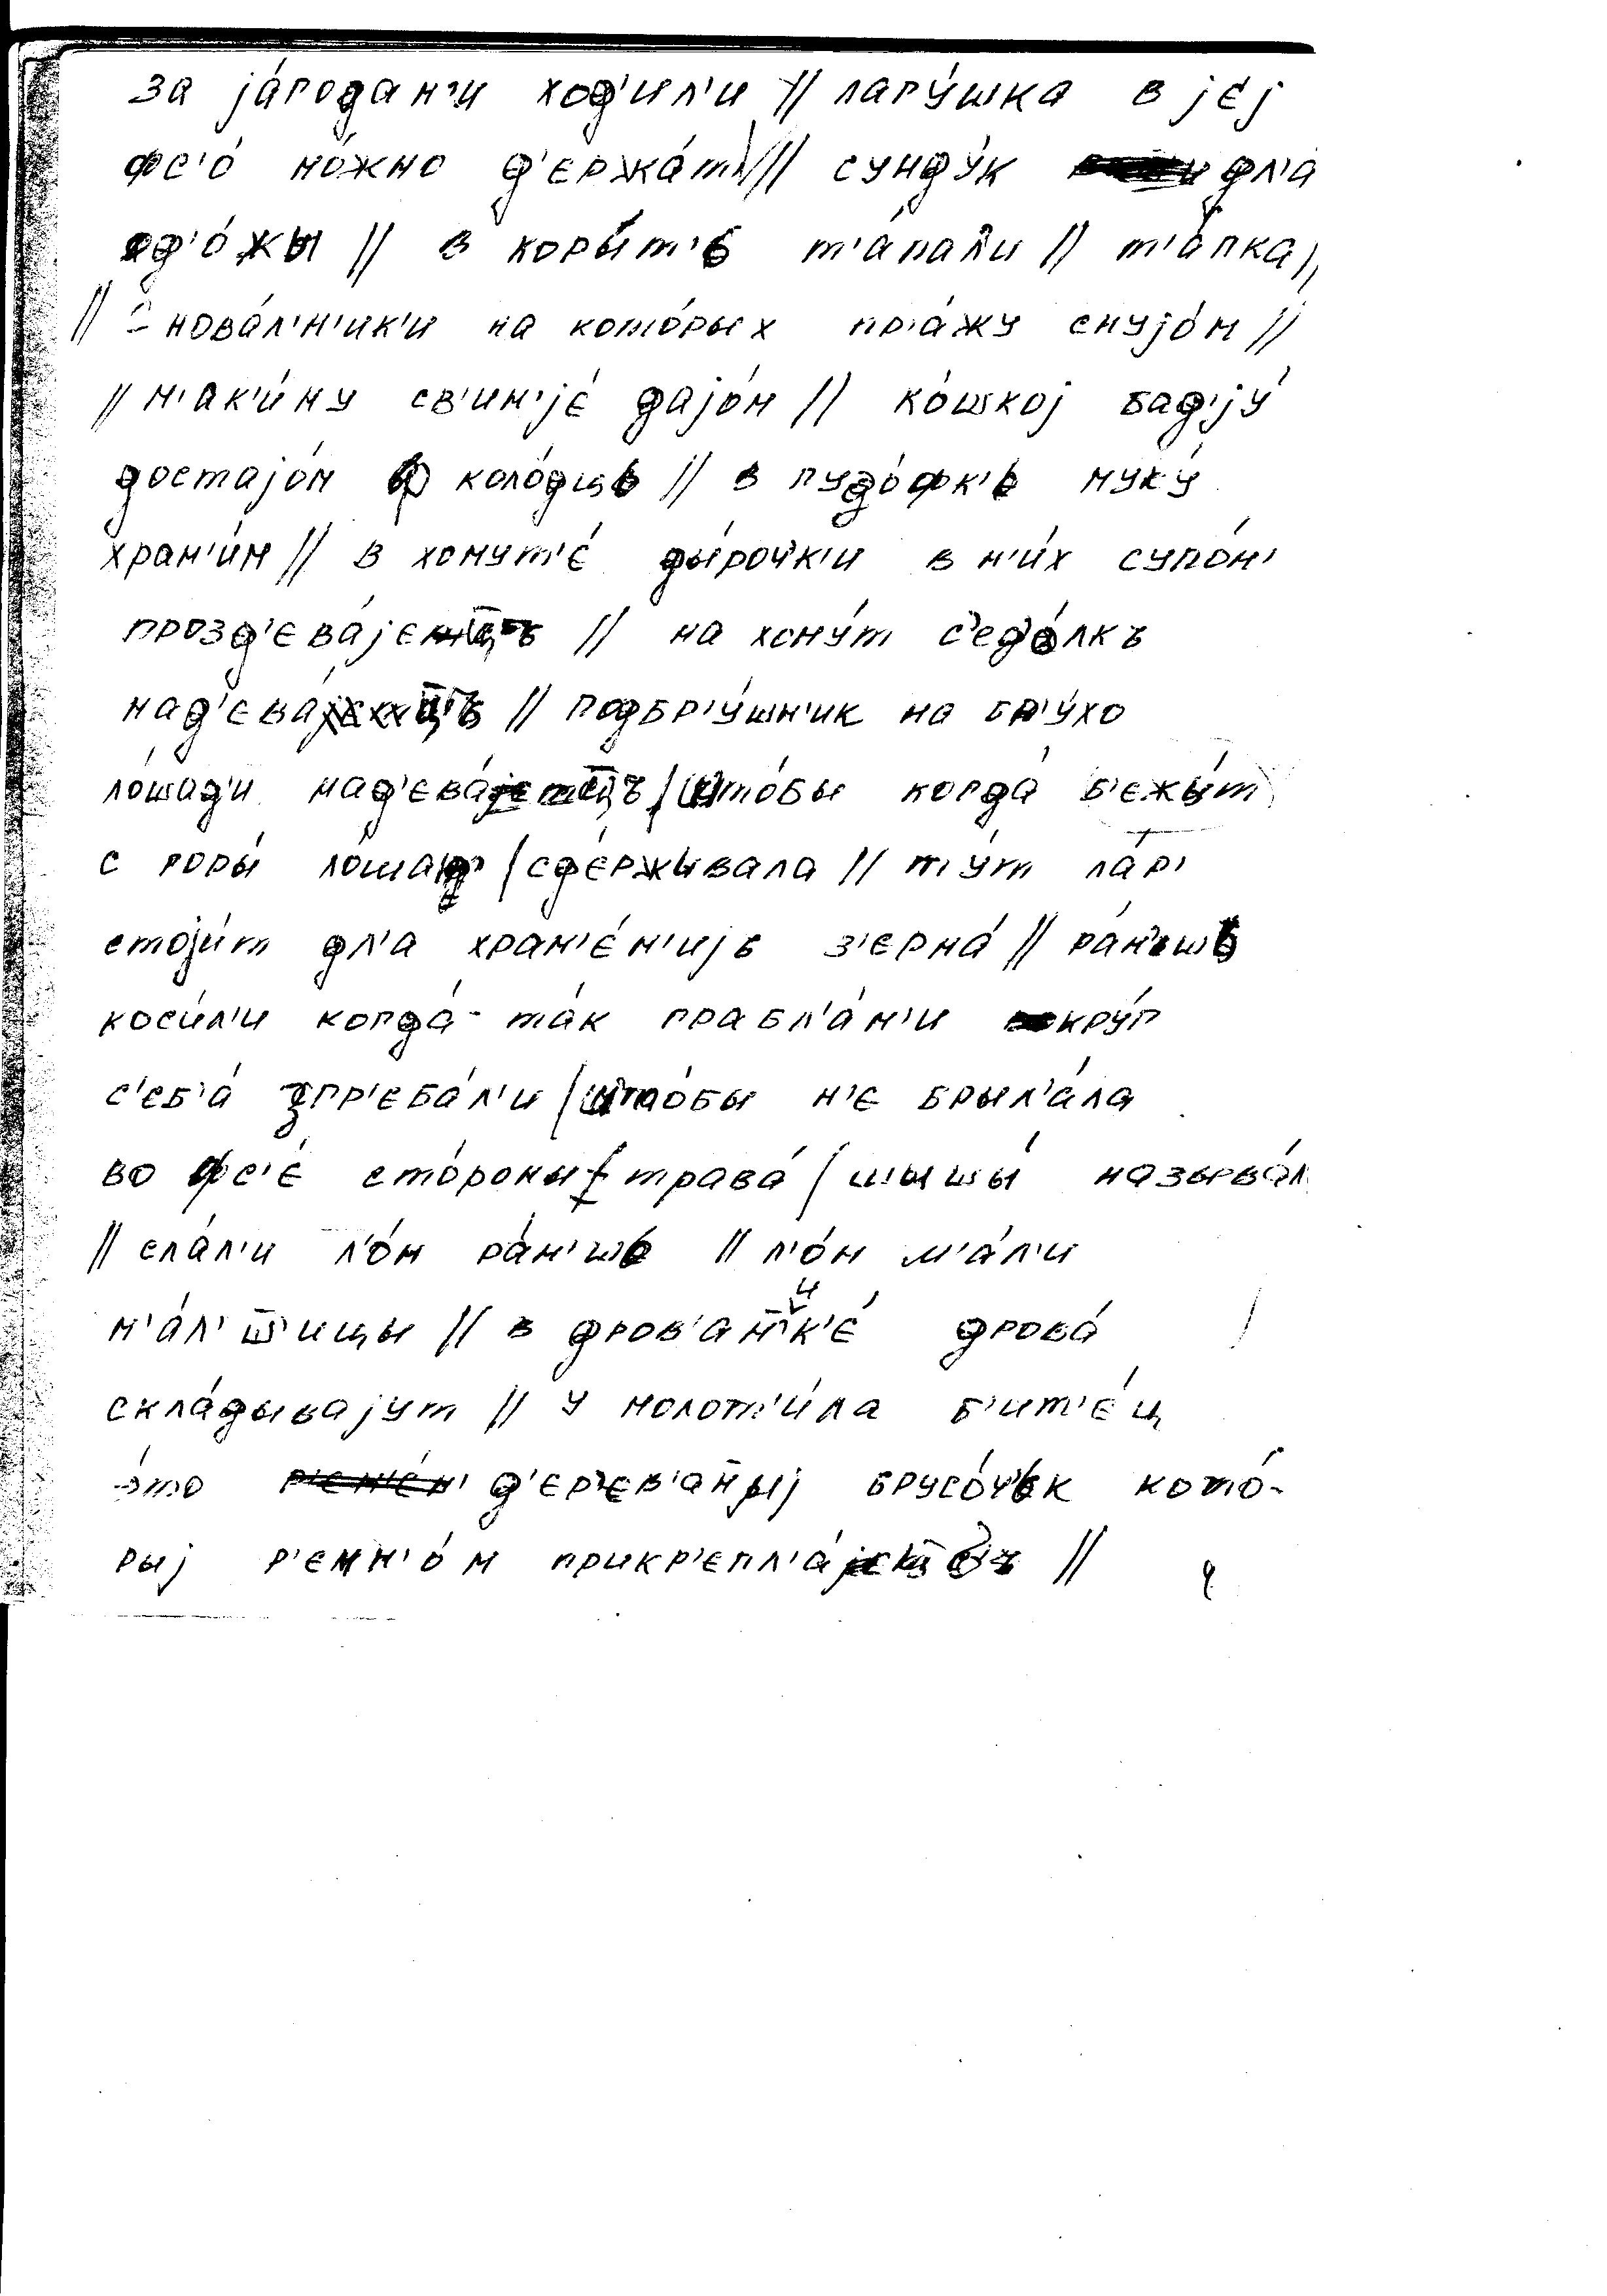 за jа́годам'и ход'ил'и // лагу́шка в jєj
фс'о́ мо́жно д'єржа́т' // сунду́к дл'а
од'о́жы // в коры́т'ь т'а́пал'и // т'а́пка //
// снова́л'н'ик'и на кото́рых пр'а́жу снуjо́м //
// м'ак'и́ну св'ин'jє́ даjо́м // ко́шкоj бад'jу́
достаjо́м в коло́дць // в пудо́фк'ь муку́
хран'и́м // в хомут'є́ ды́роч'к'и в н'и́х супо́н'
прозд'єва́jєцъ // на хому́т с'едьо́лкъ
над'єва́цъ // подбр'у́шн'ик на бр'у́хо
ло́шад'и над'єва́цъ / што́бы когда́ б'єжы́т
с горы́ ло́шад' / сд'е́ржывала // ту́т ла́р'
стоjи́т дл'а хран'є́н'иjь з'єрна́ // ра́н'шь
коси́л'и когда́ та́к грабл'а́м'и вокру́г
с'єб'а́ згр'єба́л'и / што́бы н'є брыл'а́ла
во фс'є́ сто́роны трава́ / шышы́ называ́л
// сла́л'и л'о́н ра́н'шь // л'о́н м'а́л'и
м'а́л' ш'ицы // в дров'ан'ик'є́ дрова́
скла́дываjут // у молот'и́ла б'ит'є́ц
э́то д'єр'єв'аныj брусо́ч'ьк кото́-
рыj р'ємн'о́м прикр'єпл'а́jєцъ //